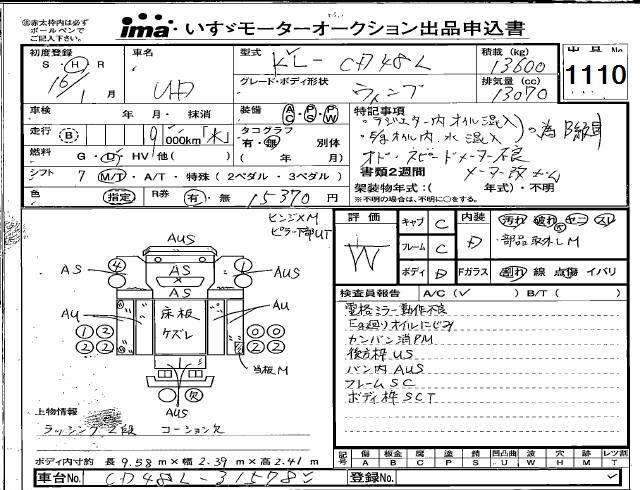 ※赤太枠内は必ず
ボールペンで
ご記入下さい。
ima いすゞモーターオークション出品申込書
初度登録 S H R 16/1 月
車名 UD
型式 KL-CD48L
グレード・ボディ形状 ウィング
積載 (kg) 13600
排気量 (cc) 13070
出品No 1110
車検 年 月・抹消
走行 B 9 000km「水」
燃料 G・D・HV 他( )
シフト 7 M/T・A/T・特殊 (2ペダル・3ペダル)
色 指定 R券 有・無 15370 円
装備 AC PS PW
タコグラフ 有・無 別体
( 年 月)
特記事項
・ラジエター内オイル混入
・E/g オイル内、水混入 の為B級
オド・スピードメーター不良
書類2週間 メーター改ナシ
架装物年式:( 年式)・不明
※不明の場合は、不明に○をする。
ヒンジXM
ピラー下部UT
AUS
4 AS AS 1 AUS
AS AUS
AU 床板 ケズレ AU
1 2 0 0
2 2 2 2
当板M
欠
AUS
上物情報
ラッシング2段 コーション欠
ボディ内寸約 長 9.58 m×幅 2.39 m×高 2.41 m
評価 W
キャブ C
フレーム C
ボディ D
内装 D
汚れ 破れ ヤニ スレ
・部品取外しM
Fガラス 割れ 線 点傷 イバリ
検査員報告 A/C(✓) B/T( )
電格ミラー動作不良
E/g廻りオイルにじみ
カンバン消PM
後方枠US
バン内AUS
フレームSC
ボディ枠SCT
記号 傷 A 板金 B 腐 C 塗 P 錆 S 凹凸曲 U 波 W 穴 H 跡 M レツ割 T
車台No. CD48L-31578
登録No.